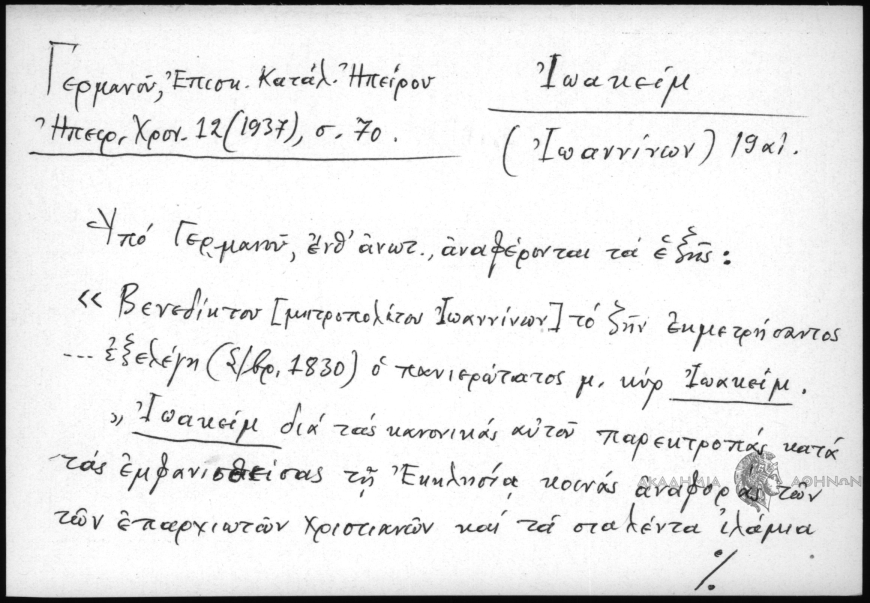 Γερμανοῦ, Ἐπισκ. Κατάλ. Ἠπείρου
Ἠπειρ. Χρον. 12 (1937), σ. 70.
Ἰωακείμ
(Ἰωαννίνων) 19 αἰ.
Ὑπό Γερμανοῦ, ἔνθ' ἀνωτ., ἀναφέρονται τά ἑξῆς:
«Βενεδίκτου [μητροπολίτου Ἰωαννίνων] τό ζῆν ἐκμετρήσαντος
... ἐξελέγη (Σ/βρ. 1830) ὁ πανιερώτατος μ. κύρ Ἰωακείμ.
» Ἰωακείμ διά τάς κανονικάς αὐτοῦ παρεκτροπάς κατά
τάς ἐμφανισθείσας τῇ Ἐκκλησίᾳ κοινάς ἀναφοράς τῶν
τῶν ἐπαρχιωτῶν Χριστιανῶν καί τά σταλέντα ἰλάμια
·/.
ΑΚΑΔΗΜΙΑ ΑΘΗΝΩΝ